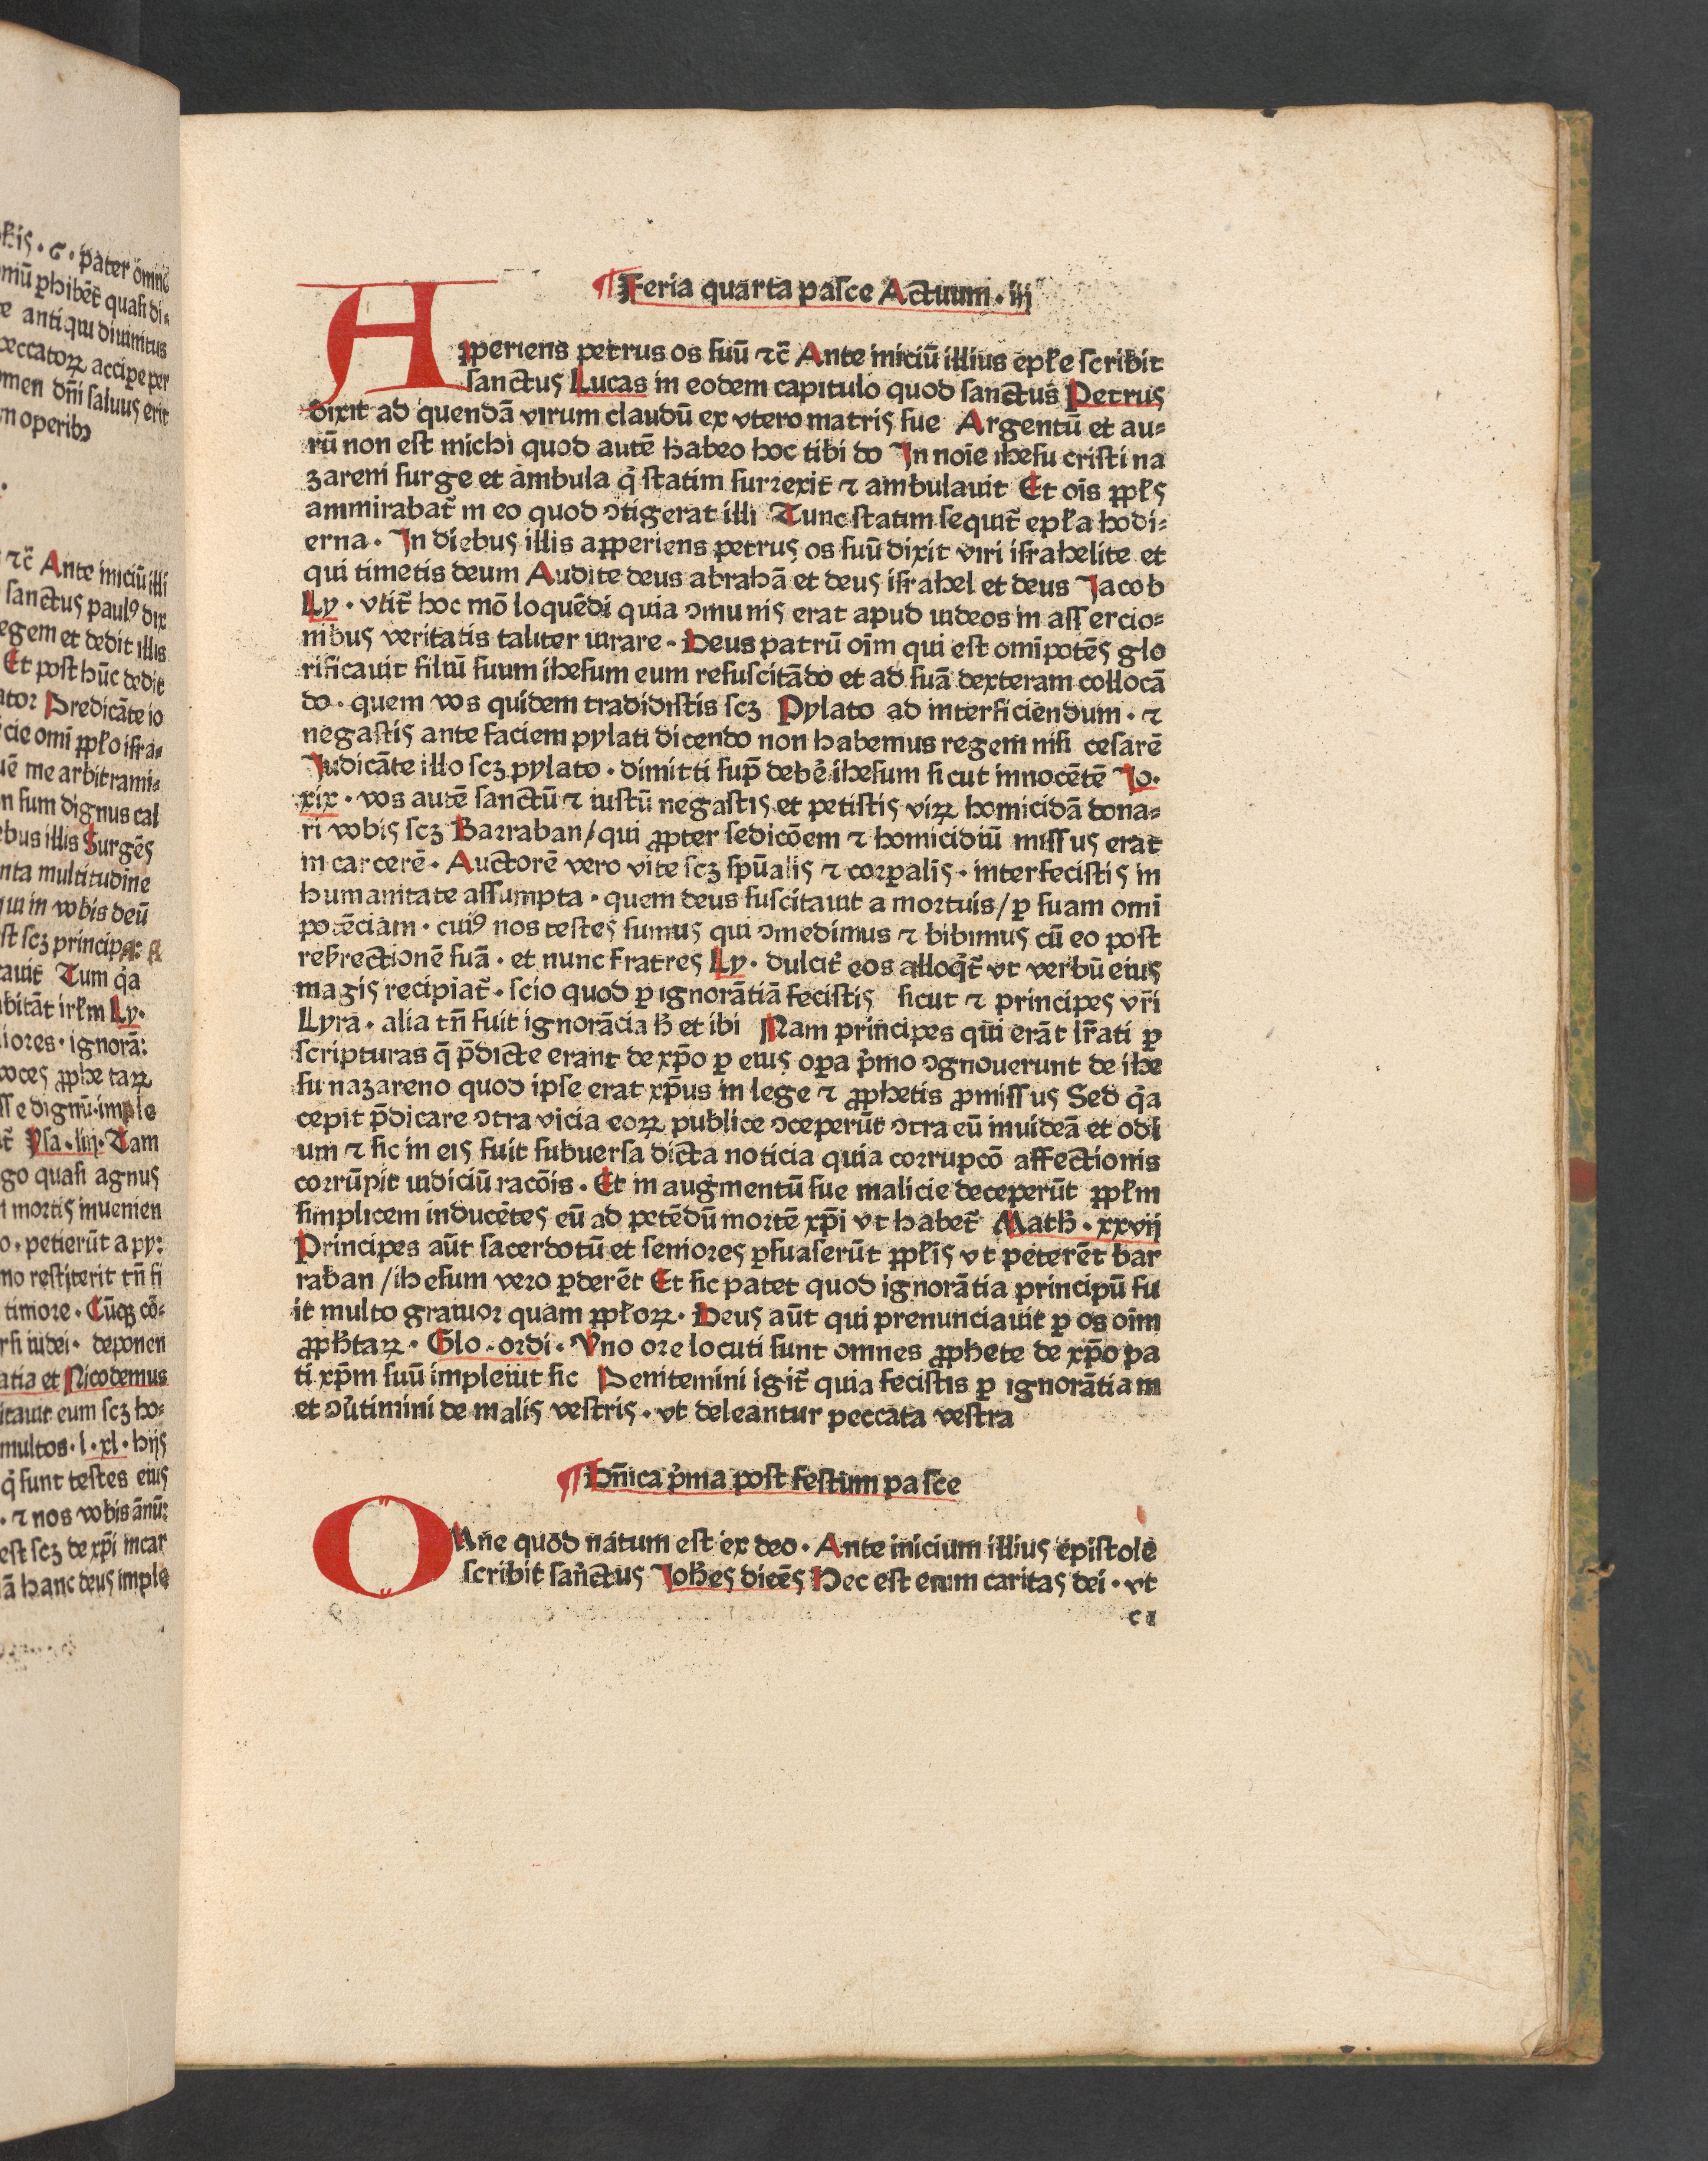 ¶ Feria quarta pasce Actuum · iij
APperiens petrus os suū ⁊c̄ Ante iniciū illius epłe scribit
sanctus Lucas in eodem capitulo quod sanctus Petrus
dixit ad quendā virum claudū ex vtero matris sue Argentū et au=
rū non est michi quod autē habeo hoc tibi do In noīe ihesu cristi na
zareni surge et ambula q̇ statim surrexit ⁊ ambulauit Et oīs ꝓpłs
ammirabat̄ in eo quod ↄtigerat illi Tunc statim sequit̄ epła hodi=
erna · In diebus illis apperiens petrus os suū dixit viri israhelite et
qui timetis deum Audite deus abrahā et deus israhel et deus Jacob
Ly · vtit̄ hoc mō loquēdi quia ↄmunis erat apud iudeos in assercio=
nibus veritatis taliter iurare · Deus patrū oīm qui est omīpotēs glo
rificauit filiū suum ihesum eum resuscitādo et ad suā dexteram collocā
do · quem vos quidem tradidistis scꝫ Pylato ad interficiendum · ⁊
negastis ante faciem pylati dicendo non habemus regem nisi cesarē
Judicāte illo scꝫ pylato · dimitti sup̄ debē ihesum sicut innocētē Jo·
xix · vos autē sanctū ⁊ iustū negastis et petistis viꝝ homicidā dona=
ri vobis scꝫ Barraban / qui ꝓpter sedicōem ⁊ homicidiū missus erat
in carcerē · Auctorē vero vite scꝫ spūalis ⁊ corꝑalis · interfecistis in
humanitate assumpta · quem deus suscitauit a mortuis / ꝑ suam omī
potēciam · cuiꝰ nos testes sumus qui ↄmedimus ⁊ bibimus cū eo post
resrectionē suā · et nunc fratres Ly · dulcit̄ eos alloq̄t̄ vt verbū eius
magis recipiat̄ · scio quod ꝑ ignorātiā fecistis sicut ⁊ principes vr̄i
Lyra · alia tn̄ fuit ignorācia ħ et ibi Nam principes qui erāt lr̄ati ꝑ
scripturas q̄ p̄dicte erant de xp̄o ꝑ eius oꝑa p̄mo ↄgnouerunt de ihe
su nazareno quod ipse erat xp̄us in lege ⁊ ꝓphetis ꝓmissus Sed q̇a
cepit p̄dicare ↄtra vicia eoꝝ publice ↄceperūt ↄtra eū inuideā et odi
um ⁊ sic in eis fuit subuersa dicta noticia quia corrupcō affectionis
corrūpit iudiciū racōis · Et in augmentū sue malicie deceperūt ꝓpłm
simplicem inducētes eū ad petēdū mortē xp̄i vt habet̄ Math̄ · xxvij
Principes aūt sacerdotū et seniores ꝑsuaserūt ꝓpłis vt peterēt bar
raban / ihesum vero ꝑderēt Et sic patet quod ignorātia principū fu
it multo grauior quam ꝓpłoꝝ · Deus aūt qui prenunciauit ꝑ os oīm
ꝓph̄taꝝ · Glo · ordi · Vno ore locuti sunt omnes ꝓphete de xp̄o pa
ti xp̄m suū impleuit sic Penitemini igit̄ quia fecistis ꝑ ignorātiam
et ↄūtimini de malis vestris · vt deleantur peccata vestra
¶ Dn̄ica p̄ma post festum pasce
OMne quod natum est ex deo · Ante inicium illius epistole
scribit sanctus Joh̄es dicēs Hec est enim caritas dei · vt
c i